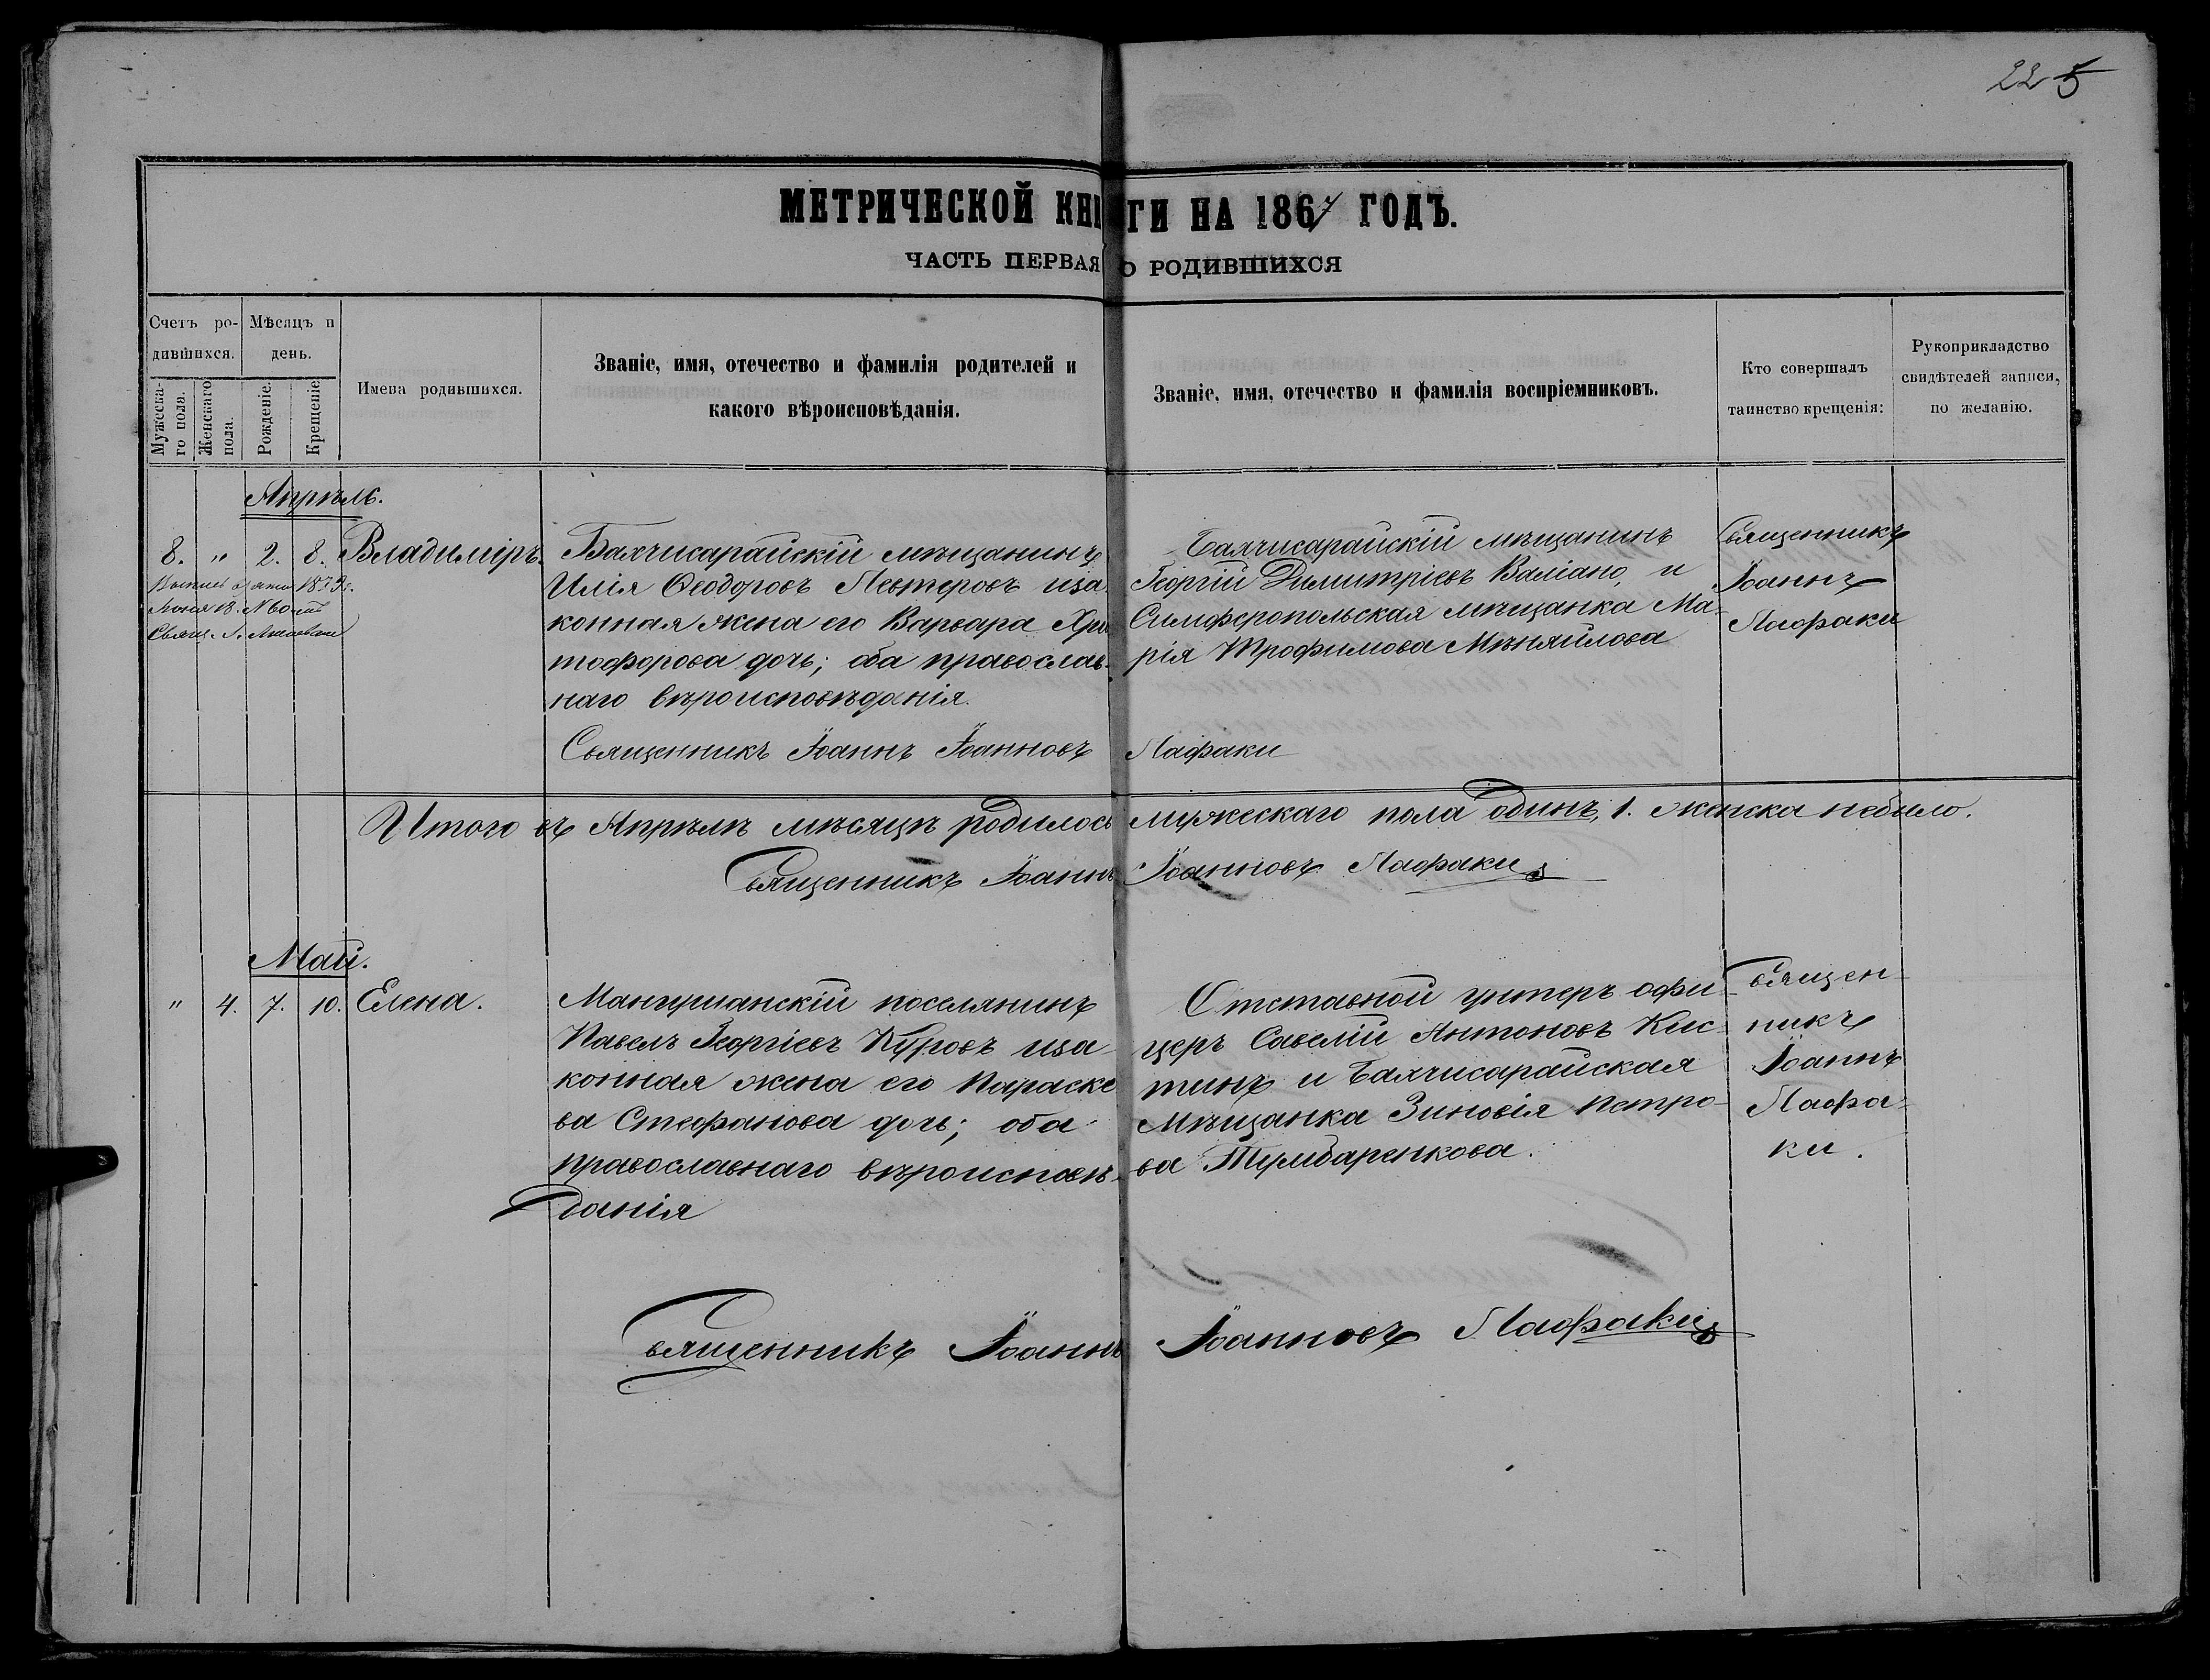 225
МЕТРИЧЕСКОЙ КНИГИ НА 1867 ГОДЪ.
ЧАСТЬ ПЕРВАЯ О РОДИВШИХСЯ
Счетъ ро-
дившихся.
Мѣсяцъ и
день.
Мужеска-
го пола.
Женскаго
пола.
Рожденіе.
Крещеніе.
Имена родившихся.
Званіе, имя, отечество и фамилія родителей и
какого вѣроисповѣданія.
Званіе, имя, отечество и фамилія воспріемниковъ.
Кто совершалъ
таинство крещенія:
Рукоприкладство
свидѣтелей записи,
по желанію.
Апрѣль.
8. „ 2. 8. Владиміръ.
1873 г.
18. № 60
Бахчисарайскій мѣщанинъ
Илія Ѳеодоровъ Певтеровъ иза
конная жена его Варвара Хри
тофорова дочь; оба православ-
наго вѣроисповѣданія.
Бахчисарайскій мѣщанинъ
Георгій Димитріевъ Валіано, и
Симферопольская мѣщанка Ма-
рія Трофимова Мѣняйлова
Священникъ
Іоаннъ
Лафаки
Священникъ Іоаннъ Іоанновъ Лафаки
Итого въ Апрѣлѣ мѣсяцѣ родилось мужескаго пола одинъ, 1. женска небыло.
Священникъ Іоаннъ Іоанновъ Лафаки
Май.
„ 4. 7. 10. Елена.
Мангушанскій поселянинъ
Павелъ Георгіевъ Куровъ иза
конная жена его Параске
ва Стефанова дочь; оба
православнаго вѣроисповѣ-
данія
Отставной унтеръ офи-
церъ Савелій Антоновъ Кис-
тинъ и Бахчисарайская
Мѣщанка Зиновія Петро-
ва Тумбаренкова.
Священ-
никъ
Іоаннъ
Лафа-
ки.
Священникъ Іоаннъ Іоанновъ Лафаки